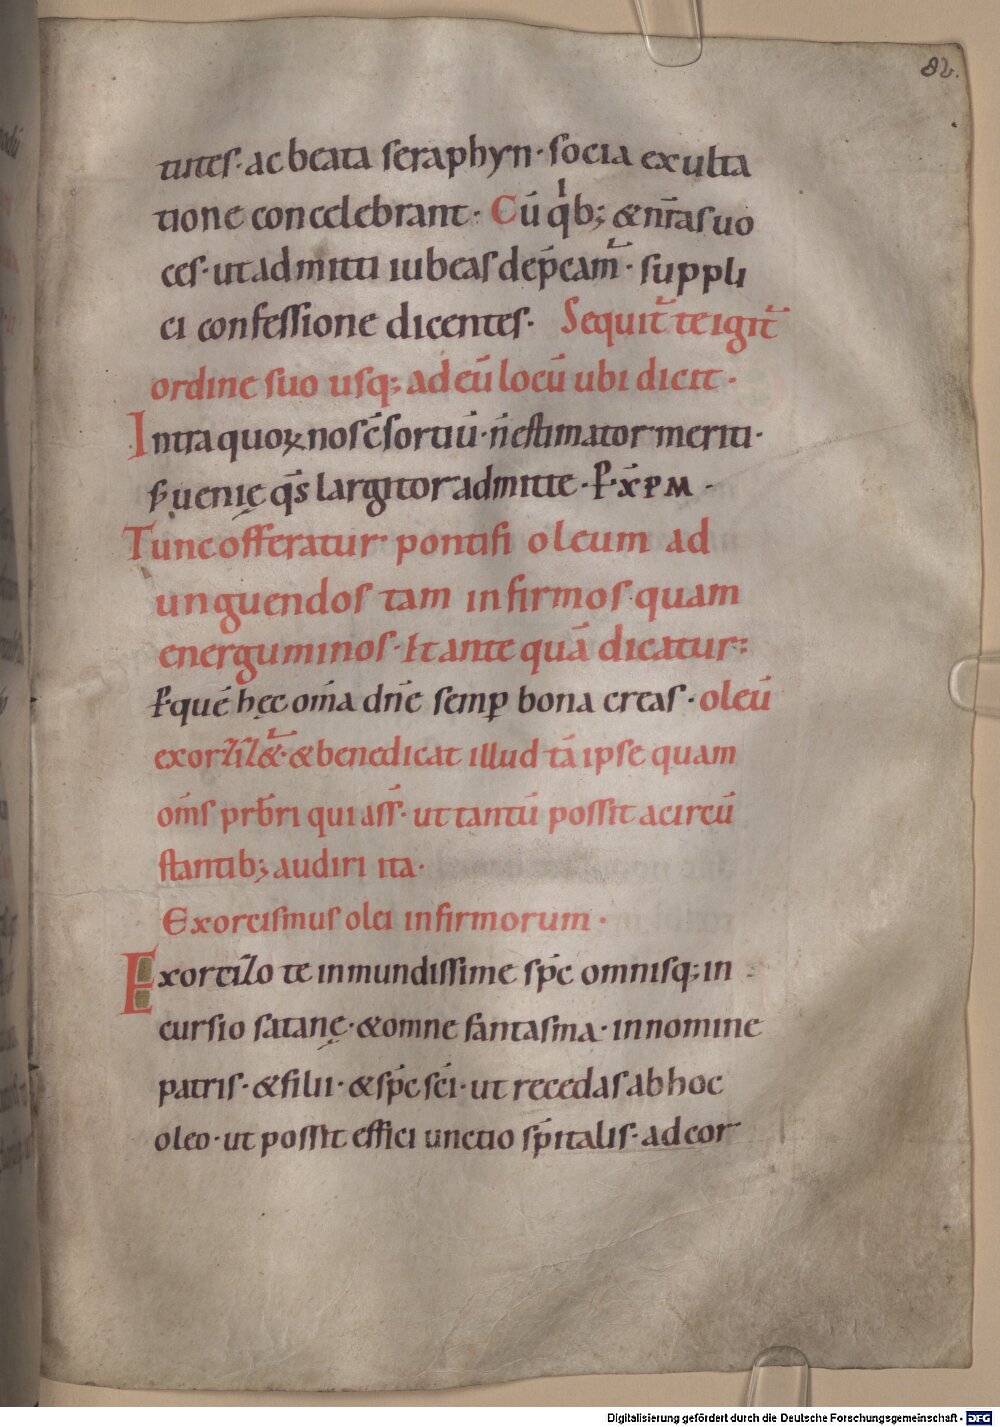 82.
tutes· ac beata seraphyn· socia exulta
tione concelebrant· Cū qͥb; & nr̄as uo
ces· ut admitti iubeas dep̄camur᷑· suppli
ci confessione dicentes· Sequit᷑ te igit᷑
ordine suo usq; ad eū locū ubi dicit·
Intra quoꝝ nos c̄sortiū· n̄ estimator meriti·
s; uenię q̄s largitor admitte· P· xp̄m·
Tunc offeratur pontifi oleum ad
unguendos tam infirmos quam
energuminos· et ante quā dicatur:
P quē hęc om̄a dn̄e semp̱ bona creas· oleū
exorzizet᷑· & benedicat illud tā ipse quam
om̄s prb̄ri qui ass̄· ut tantū possit a circū
stantib; audiri ita·
Exorcismus olei infirmorum·
Exorcizo te inmundissime sp̄c omnisq; in
cursio satanę· & omne fantasma· in nomine
patris· & filii· & sp̄c sc̄i· ut recedas ab hoc
oleo· ut possit effici unctio sp̄italis· ad cor
Digitalisierung gefördert durch die Deutsche Forschungsgemeinschaft - DFG